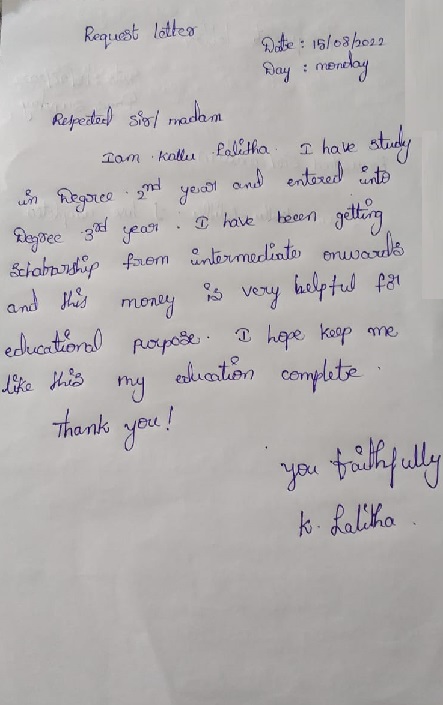 Request letter
Date : 15/08/2022
Day : monday
Respected sir/ madam
Iam Kallu Lalitha. I have study
in Degree 2nd year and entered into
Degree 3rd year. I have beeen getting
Scholarship from intermediate onwards
and this money is very helpful for
educational porpose. I hope keep me
like this my education complete.
Thank you!
you faithfully
K. Lalitha.